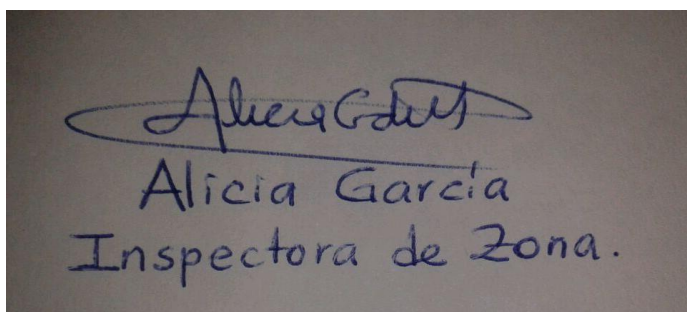 Alicia
Alicia García
Inspectora de Zona.